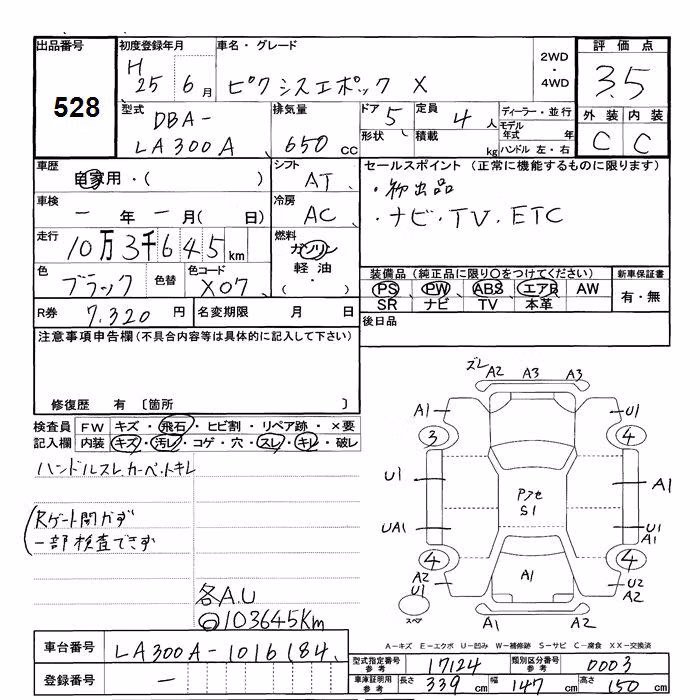 出品番号
528
初度登録年月
H 25 6月
車名・グレード
ピクシスエポック X
2WD
・
4WD
評価点
3.5
外装 内装
C C
型式
DBA-
LA300A
排気量
650 cc
ドア 5
形状
定員 4 人
積載 kg
ディーラー・並行
モデル年式 年
ハンドル 左・右
車歴
自家用・( )
シフト
AT
セールスポイント (正常に機能するものに限ります)
・初出品
・ナビ・TV・ETC
車検
ー年ー月(日)
冷房
AC
走行
10万3千645km
燃料
ガソリン
軽油
( ・ )
色
ブラック
色替
色コード
X07
装備品 (純正品に限り○をつけてください)
PS PW ABS エアB AW
SR ナビ TV 本革
新車保証書
有・無
R券 7,320円
名変期限 月 日
後日品
注意事項申告欄(不具合内容等は具体的に記入して下さい)
修復歴 有 〔箇所 〕
検査員記入欄
FW キズ・飛石・ヒビ割・リペア跡・×要
内装 キズ・汚レ・コゲ・穴・スレ・キレ・破レ
ハンドルスレ、カーペットキレ
Rゲート開かず
一部検査できず
各A.U
103645Km
ズレ A2 A3 A3
A1 U1
3 4
U1 A1
Pフセ
S1
UA1 U1
A1
4 4
A2
U1
A1
U2
A2
スペア
A1 A2
A-キズ E-エクボ U-凹み W-補修跡 S-サビ C-腐食 XX-交換済
車台番号
LA300A-1016184
登録番号
ー
型式指定番号 参考 17124
類別区分番号 参考 0003
車庫証明用 参考 長さ 339 cm 幅 147 cm 高さ 150 cm